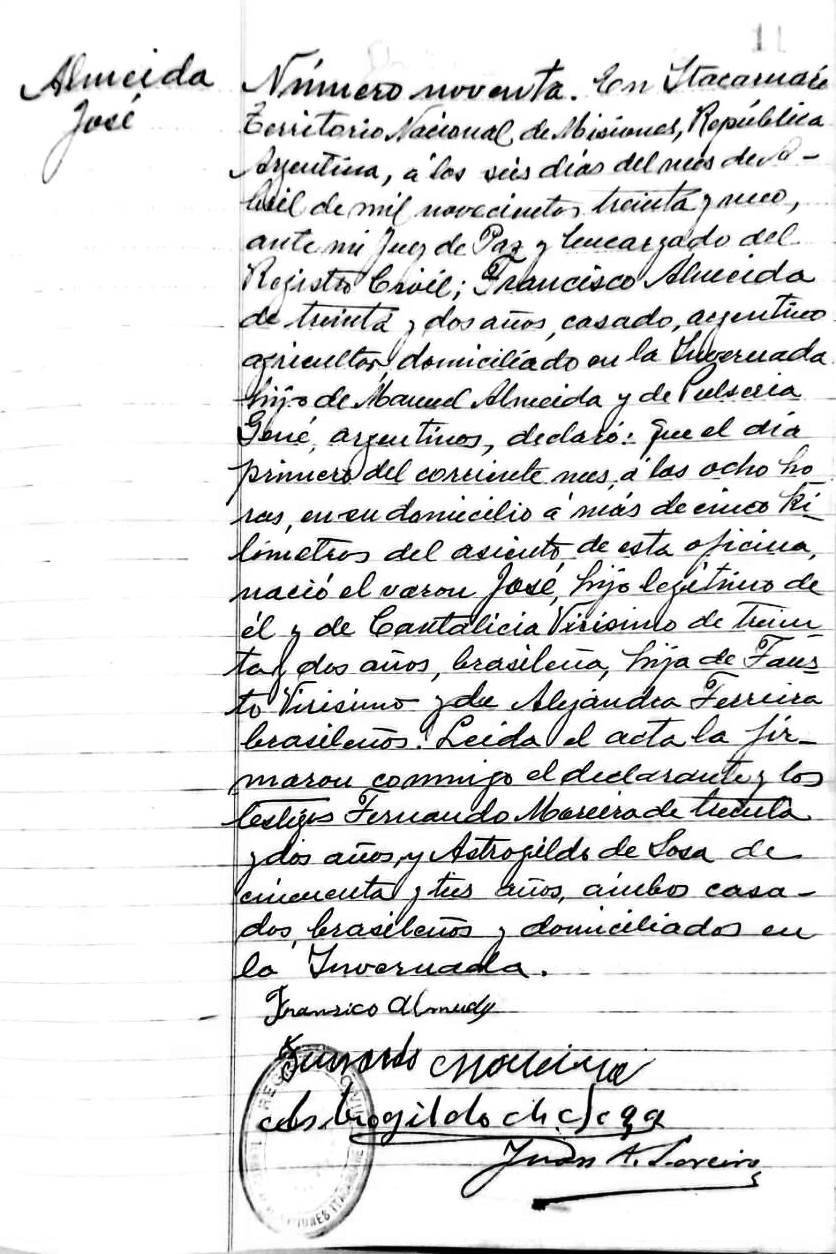 11
Almeida
José
Número noventa. En Itacaruaré
Territorio Nacional de Misiones, República
Argentina, á los seis días del mes de A-
bril de mil novecientos treinta y nueve,
ante mi Juez de Paz y Encargado del
Registro Civil; Francisco Almeida
de treinta y dos años, casado, argentino
agricultor, domiciliado en la Invernada
hijo de Manuel Almeida y de Pulseria
Gené, argentinos, declaró: Que el día
primero del corriente mes, á las ocho ho
ras, en su domicilio á más de cinco ki-
lómetros del asiento de esta oficina,
nació el varon José, hijo legítimo de
él y de Cantalicia Virisimo de trein-
ta y dos años, brasileña, hija de Faus-
to Virisimo y de Alejandra Ferreira
brasileños. Leida el acta la fir-
maron conmigo el declarante y los
testigos Fernando Moreira de treinta
y dos años, y Astrogildo de Sosa de
cincuenta y tres años, ambos casa-
dos, brasileños y domiciliados en
la Invernada.
Fransico
Juan A.